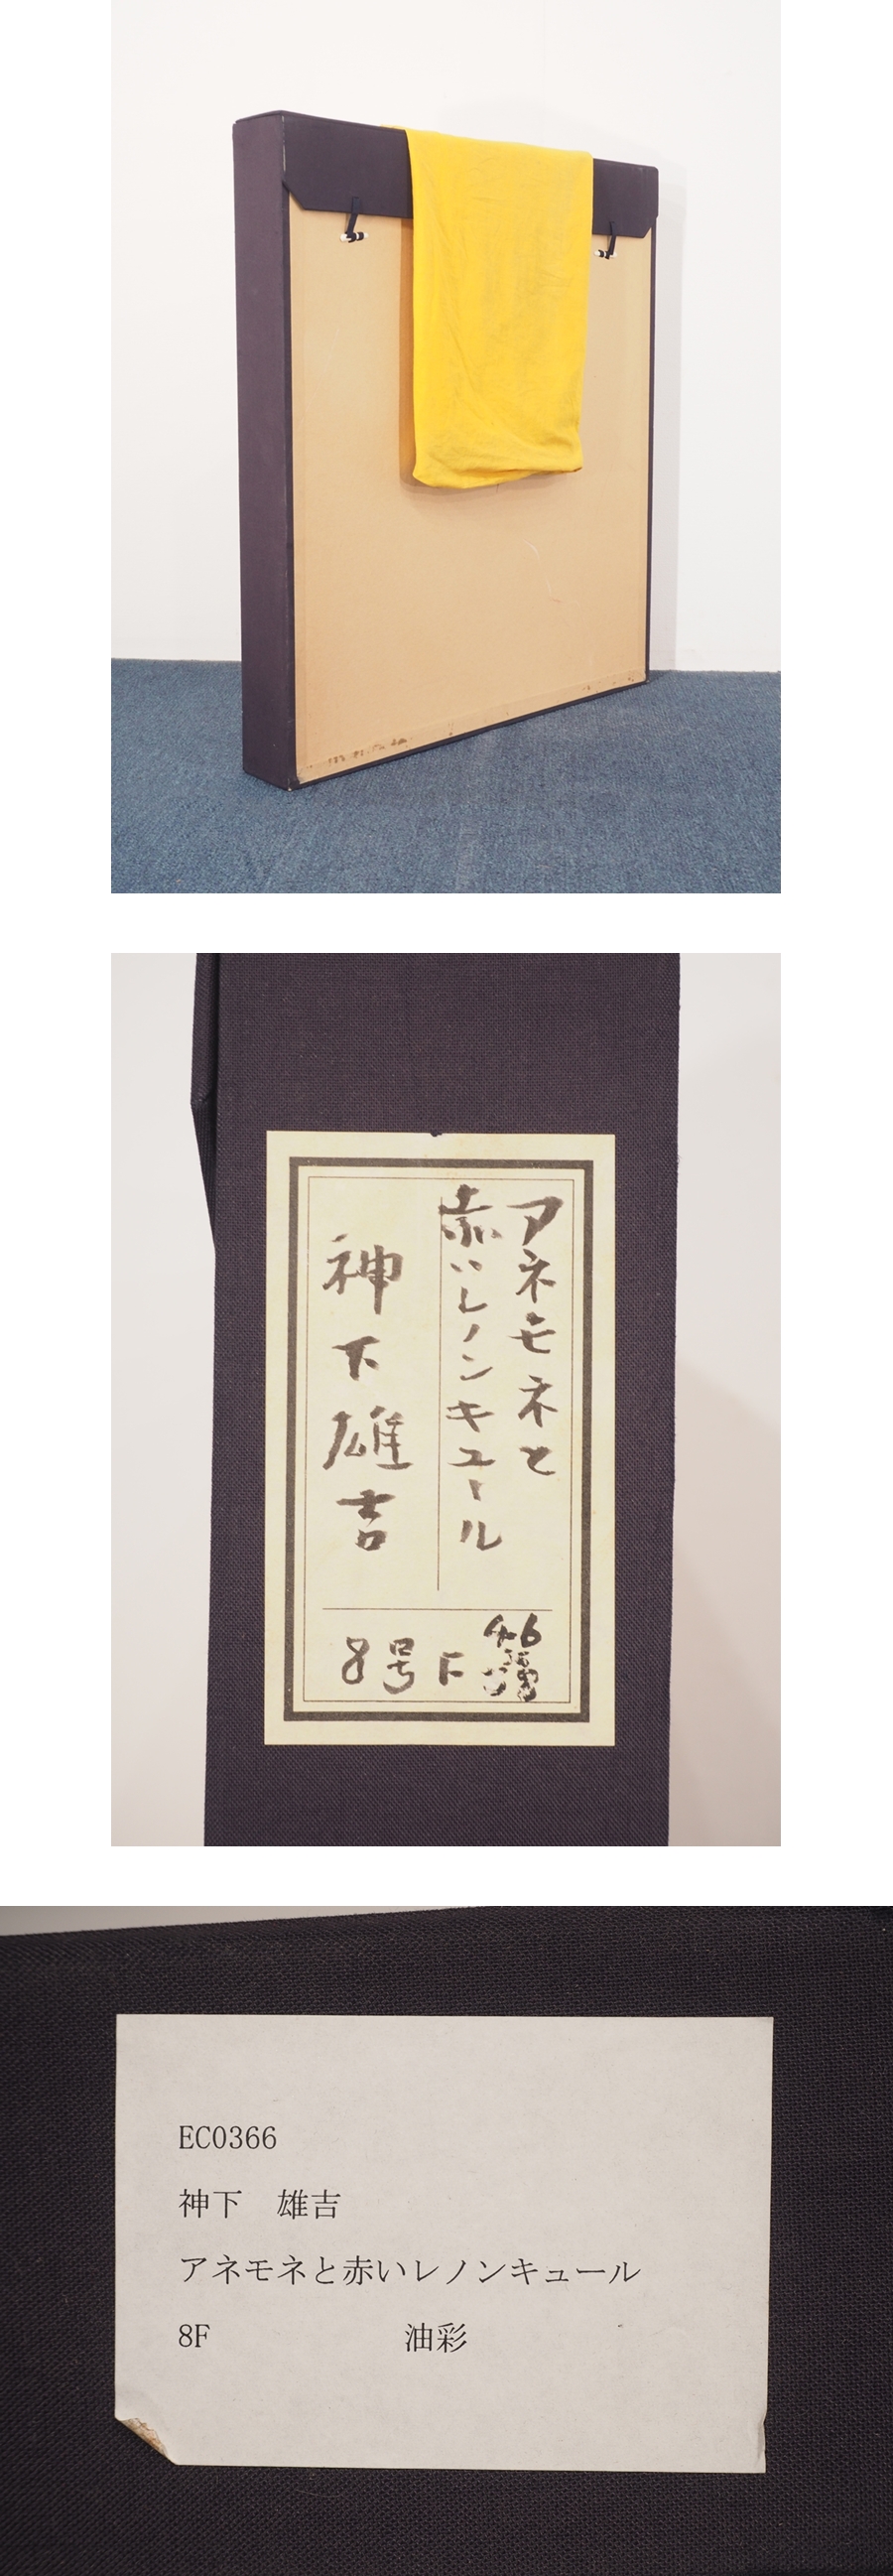 アネモネと
赤いレノンキュール
神下雄吉
8号F
EC0366
神下　雄吉
アネモネと赤いレノンキュール
8F　油彩